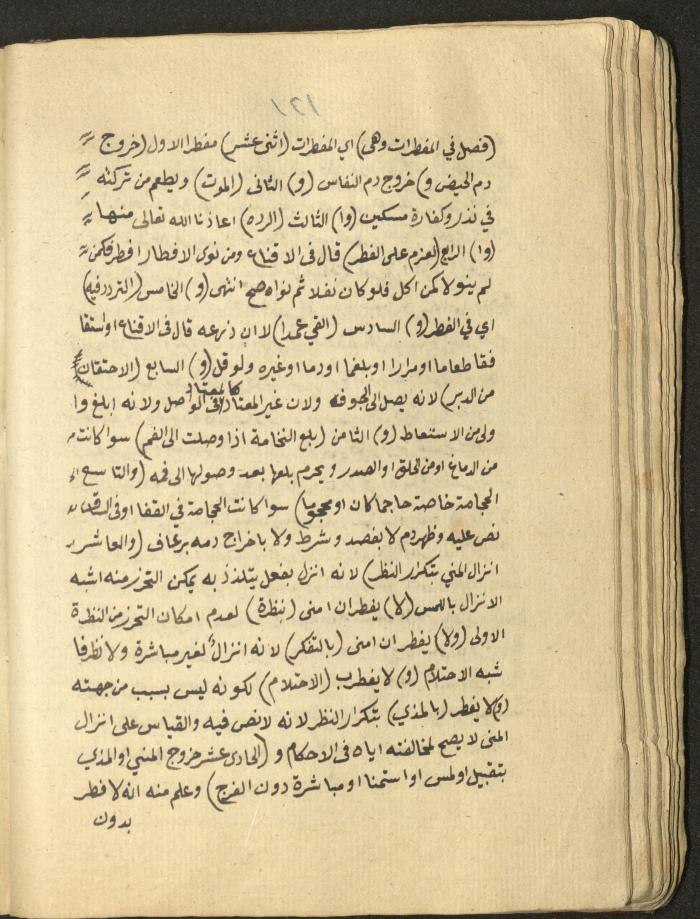 ١٢١
(فصل في المفطرات وهي) اي المفطرات (اثنى عشر) مفطرا الاول (خروج
دم الحيض و) خروج دم النفاس (و) الثانى (الموت) ويطعم من تركته
في نذر وكفارة مسكين (وا) الثالث (الرده) اعاذنا الله تعالى منها
(وا) الرابع (لعزم على الفطر) قال فى الاقناع ومن نوى الافطار افطر فكمن
لم ينو لا كمن اكل فلو كان نفلا ثم نواه صح انتهى (و) الخامس (التردد فيه)
اي في الفطر (و) السادس (القي عمدا) لا ان ذرعه قال فى الاقناع او استقا
فقا طعاما او مرارا او بلغما او دما او غيره ولو قل (و) السابع (الاحتقان
من الدبر) لانه يصل الى الجوفه ولان غير المعتاد كالمعتاد فى الواصل ولانه ابلغ وا
ولى من الاستعاط (و) الثامن (بلع النخامة اذا وصلت الى الفم) سوا كانت
من الدماغ او من الحلق او الصدر ويحرم بلعها بعد وصولها الى فمه (والتاسع
الحجامة خاصة حاجما كان او محجوما) سوا كانت الحجامة في القفا او فى الساق
نص عليه وظهر دم لا بفصد وشرط ولا باخراج دمه برعاف (والعاشر
انزال المني بتكرار النظر) لانه انزل بفعل يتلذذ به يمكن التحرز منه اشبه
الانزال باللمس (لا) يفطر ان امنى (بنظرة) لعدم امكان التحرز من النظرة
الاولى (ولا) يفطر ان امنى (بالتفكر) لانه انزال لغير مباشرة ولا نظر فا
شبه الاحتلام (و) لا يفطر ب (الاحتلام) لكونه ليس بسبب من جهته
(و) لا يفطر (بالمذي) بتكرار النظر لانه لا نص فيه والقياس على انزال
المنى لا يصح لمخالفته اياه فى الاحكام و (الحادى عشر خروج المني او المذي
بتقبيل او لمس او استمنا او مباشرة دون الفرج) وعلم منه انه لا فطر
بدون